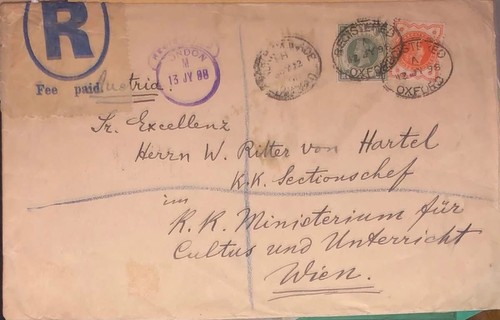 R
Fee paid.
REGISTERED
LONDON
M
13 JY 98
REGISTERED
OXFORD
REGISTERED
JY 98
OXFORD
Austria.
Sr. Excellenz
Herrn W. Ritter von Hartel
K.K. Sectionschef
im
K. K. Ministerium für
Cultus und Unterricht
Wien.